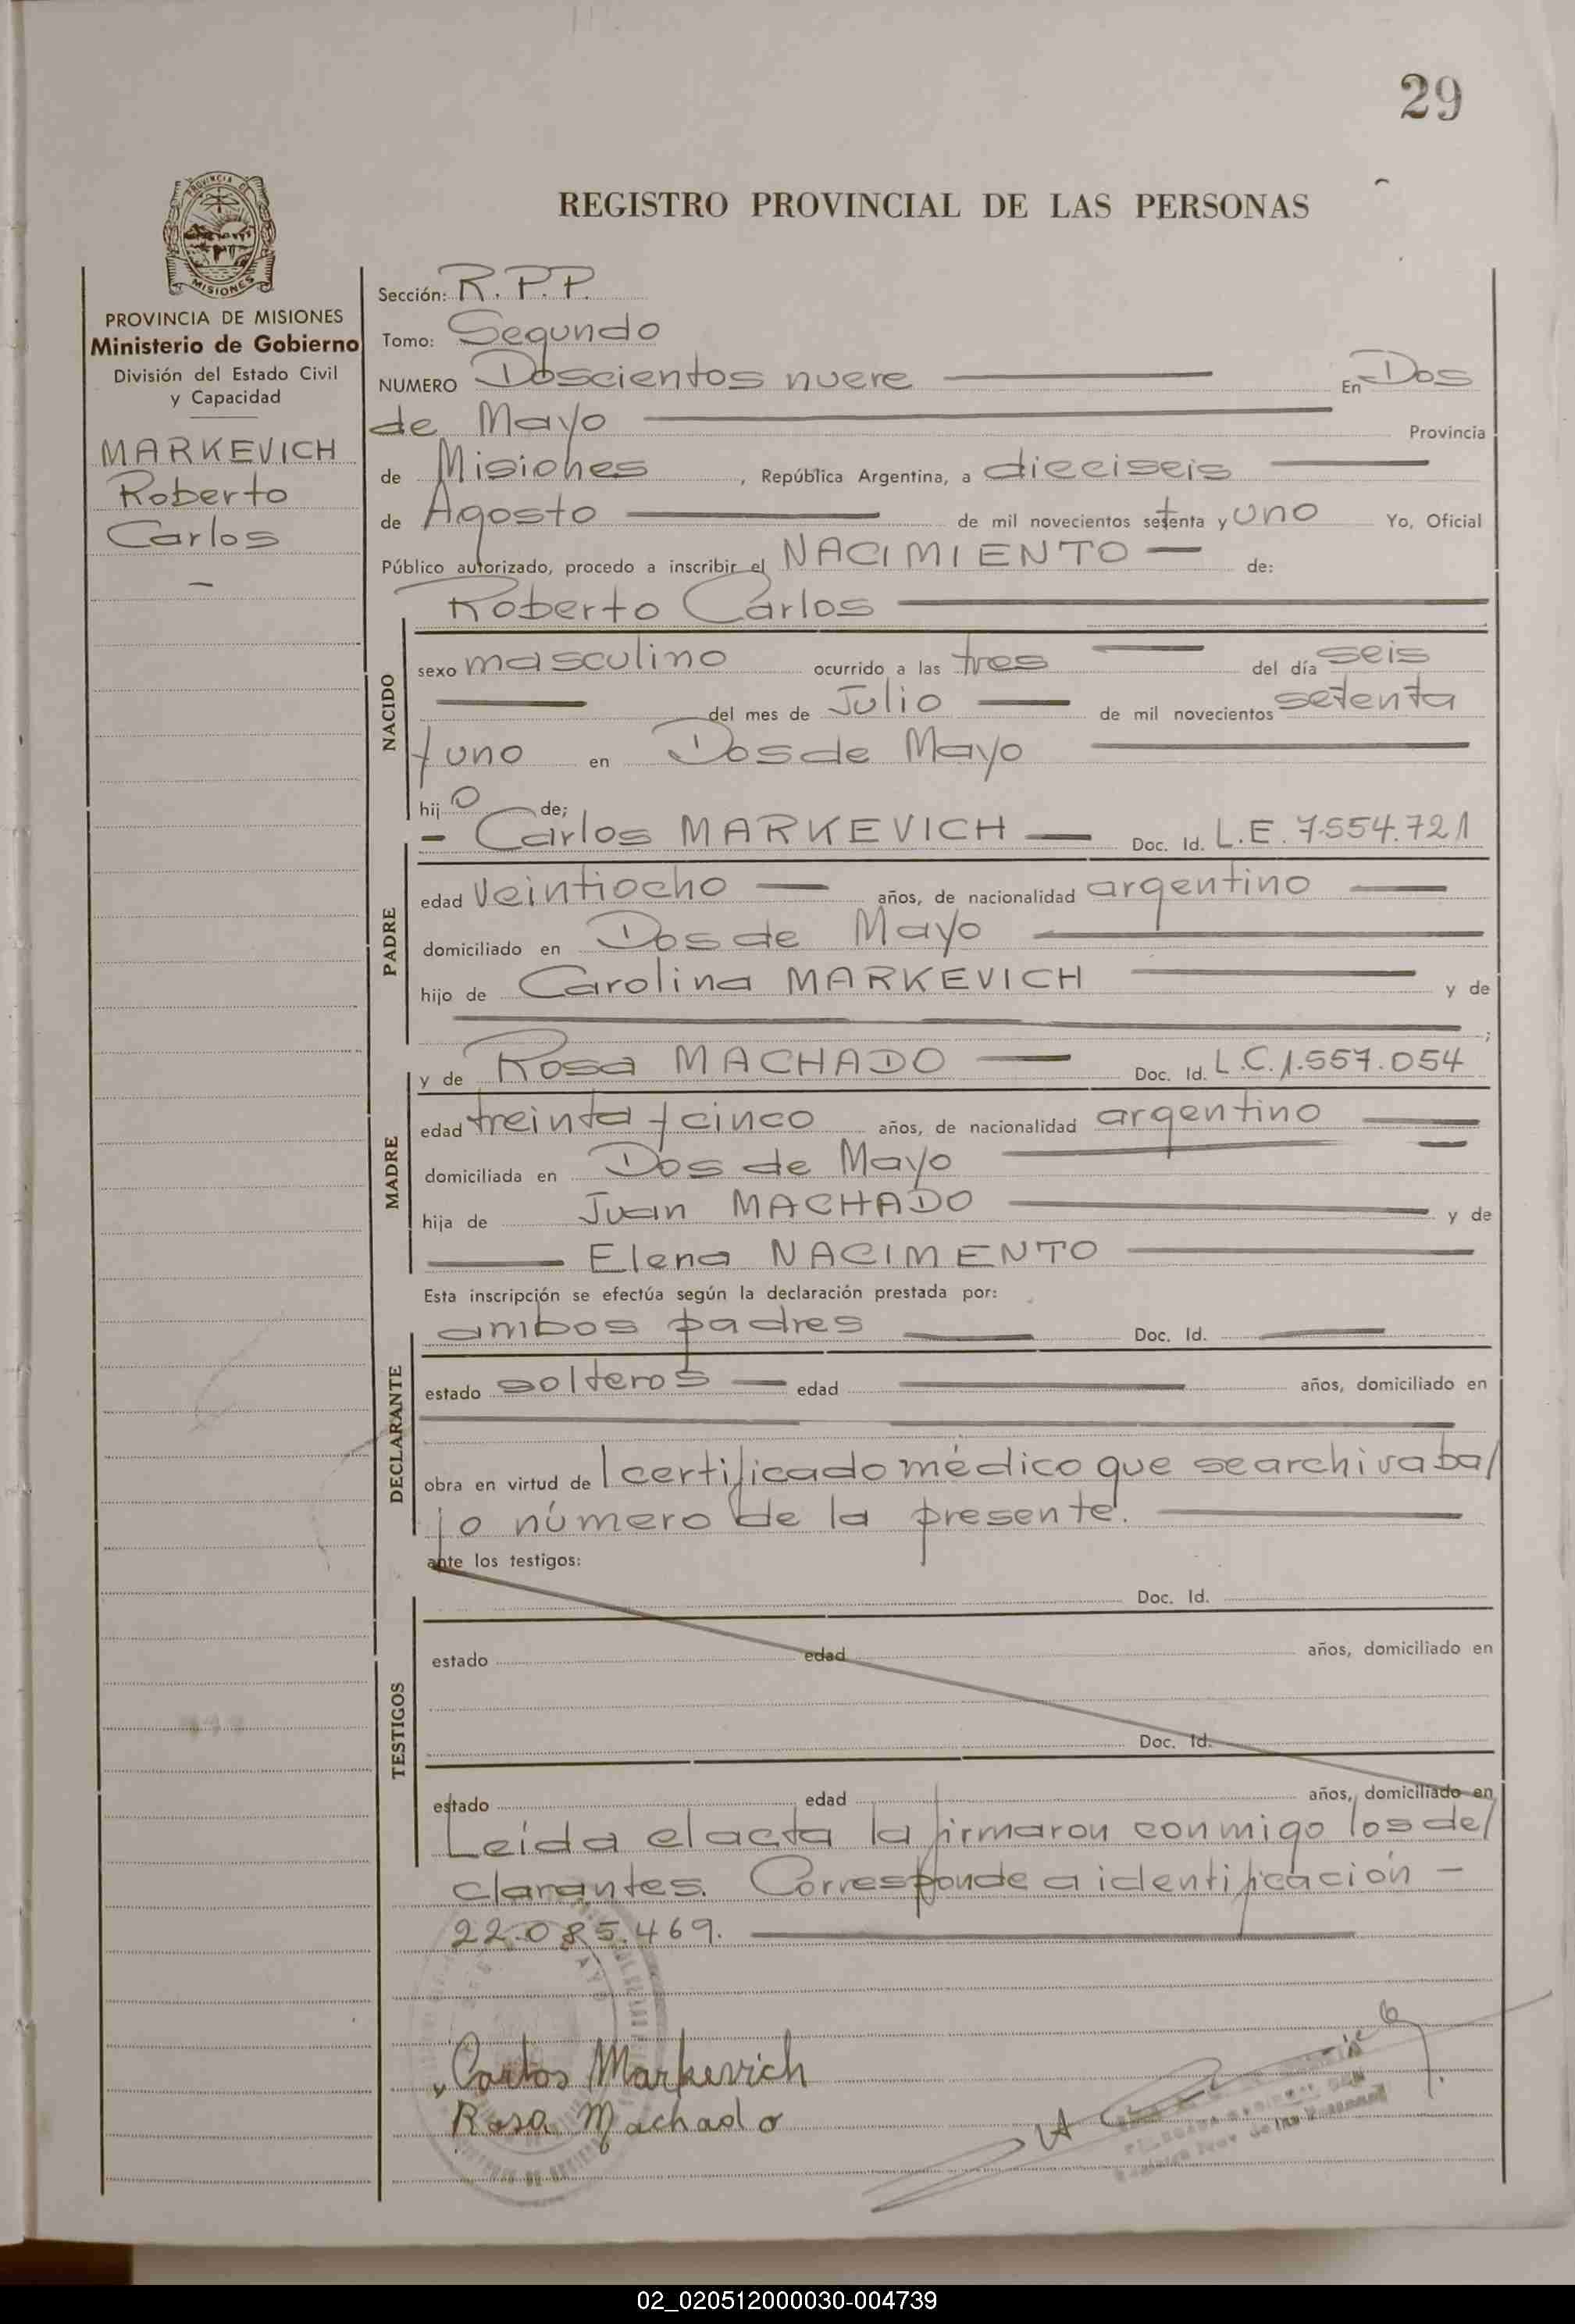 29
REGISTRO PROVINCIAL DE LAS PERSONAS
PROVINCIA DE MISIONES
PROVINCIA DE MISIONES
Ministerio de Gobierno
División del Estado Civil
y Capacidad
MARKEVICH
Roberto
Carlos
Sección: R.P.P.
Tomo: Segundo
NUMERO Doscientos nueve En Dos
de Mayo Provincia
de Misiones, República Argentina, a dieciseis
de Agosto de mil novecientos setenta y uno Yo, Oficial
Público autorizado, procedo a inscribir el NACIMIENTO — de:
Roberto Carlos
NACIDO
sexo masculino ocurrido a las tres del día seis
del mes de Julio de mil novecientos setenta
y uno en Dos de Mayo
hijo de;
- Carlos MARKEVICH — Doc. Id. L.E. 7.554.721
PADRE
edad veintiocho — años, de nacionalidad argentino
domiciliado en Dos de Mayo
hijo de Carolina MARKEVICH y de
;
y de Rosa MACHADO — Doc. Id. L.C. 1.557.054
MADRE
edad treinta y cinco años, de nacionalidad argentino
domiciliada en Dos de Mayo
hija de Juan MACHADO y de
Elena NACIMENTO
Esta inscripción se efectúa según la declaración prestada por:
ambos padres Doc. Id.
DECLARANTE
estado solteros — edad años, domiciliado en
obra en virtud de l certificado médico que se archiva ba/
jo número de la presente.
ante los testigos:
Doc. Id.
TESTIGOS
estado edad años, domiciliado en
Doc. Id.
estado edad años, domiciliado en
Leída el acta la firmaron conmigo los de/
clarantes. Corresponde a identificación —
22.085.469.
Carlos Markevich
Rosa Machado
02_020512000030-004739